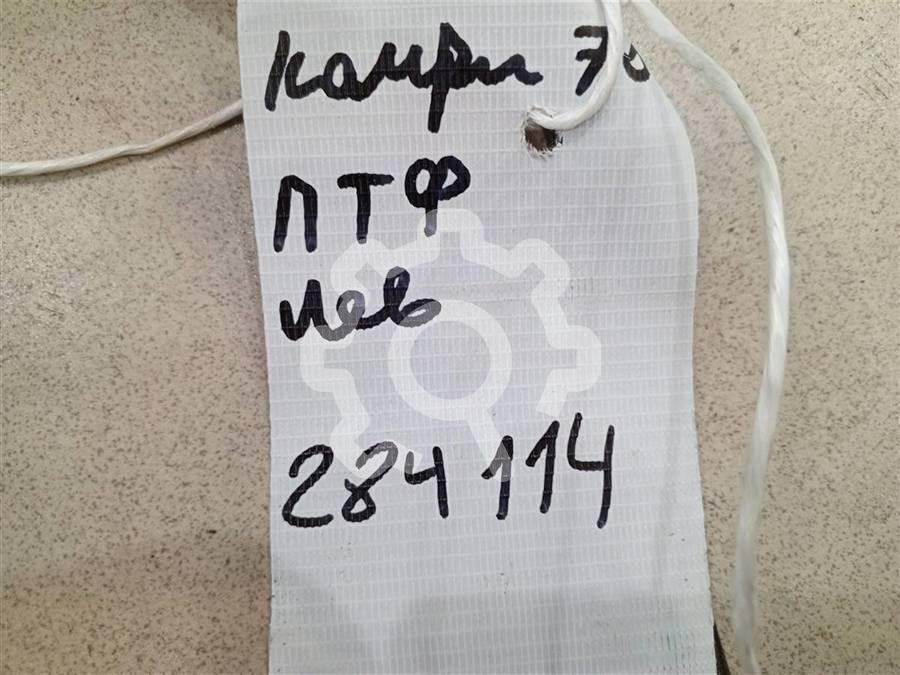 Камри 70
ПТФ
лев
284114